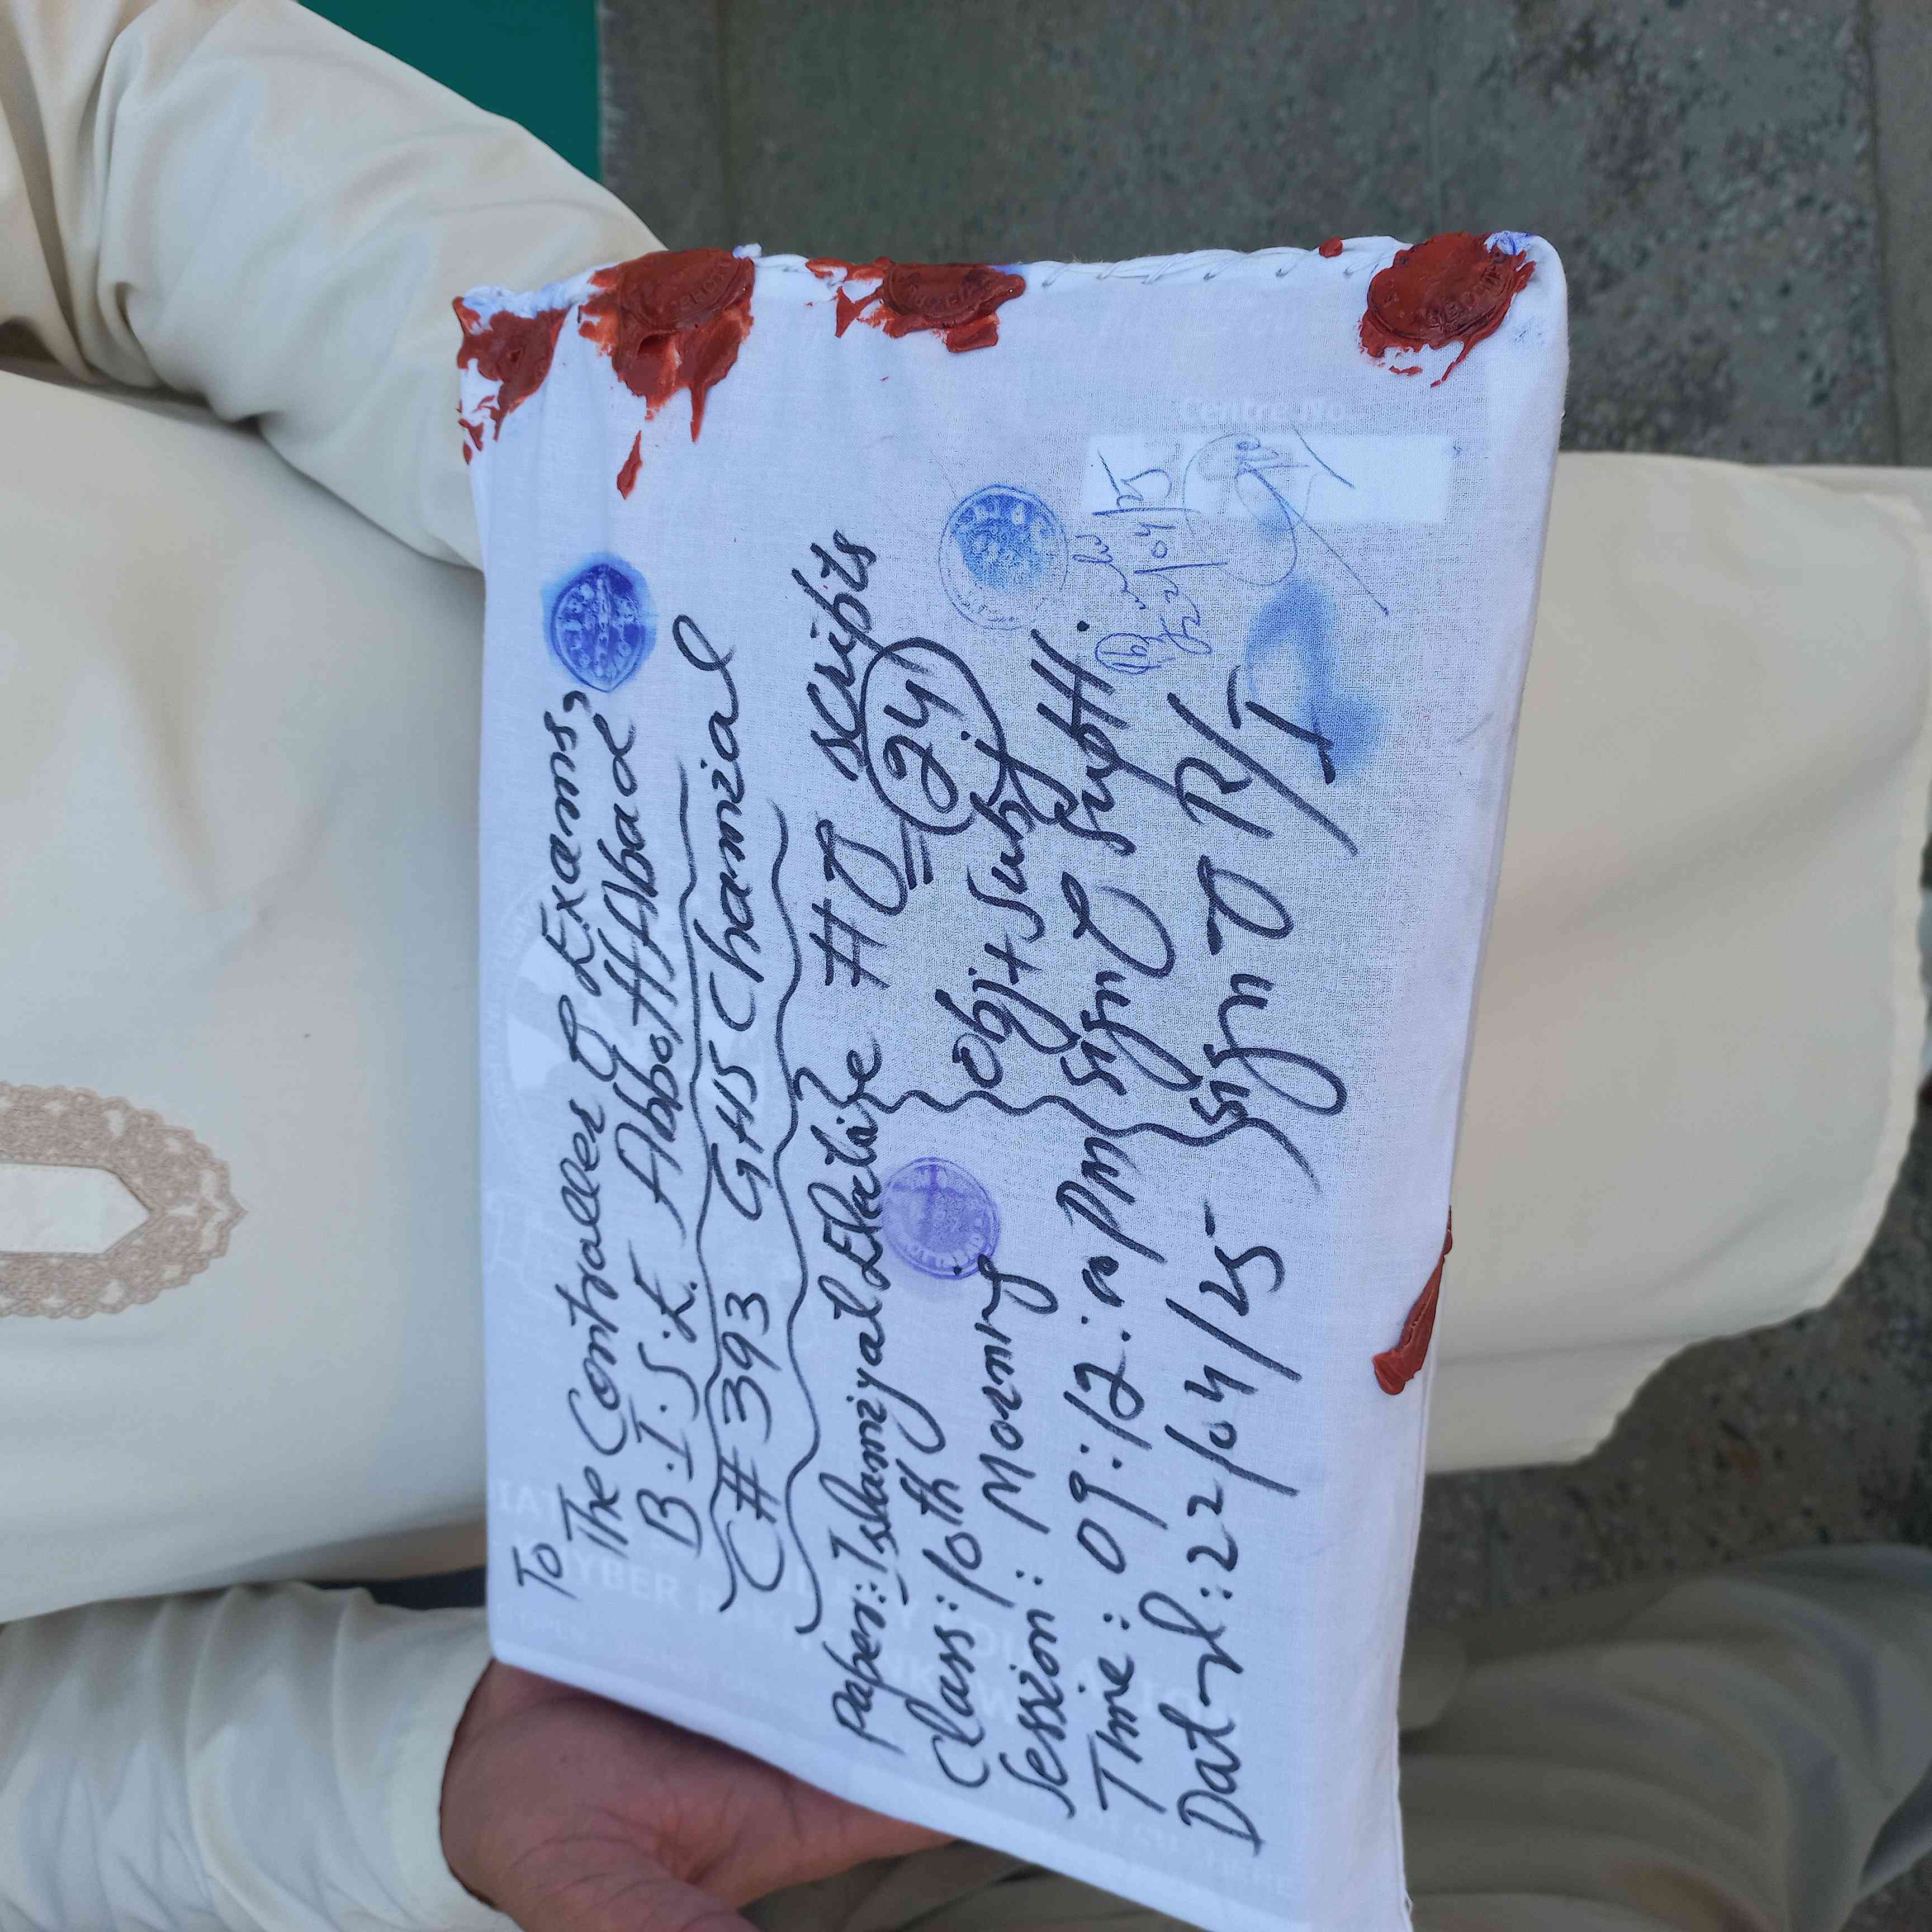 To
The Controller of Exams,
B.I.S.E Abbottabad
C# 393 GHS Chamial
Paper: Islamiyat Elective # of scripts
24
Class: 10th
obj + subj
Session: Morning
Sign of Supdtt.
Time: 09:12:00 PM
Sign of R/I
Dated: 22/04/25
Centre No.
22/04/25